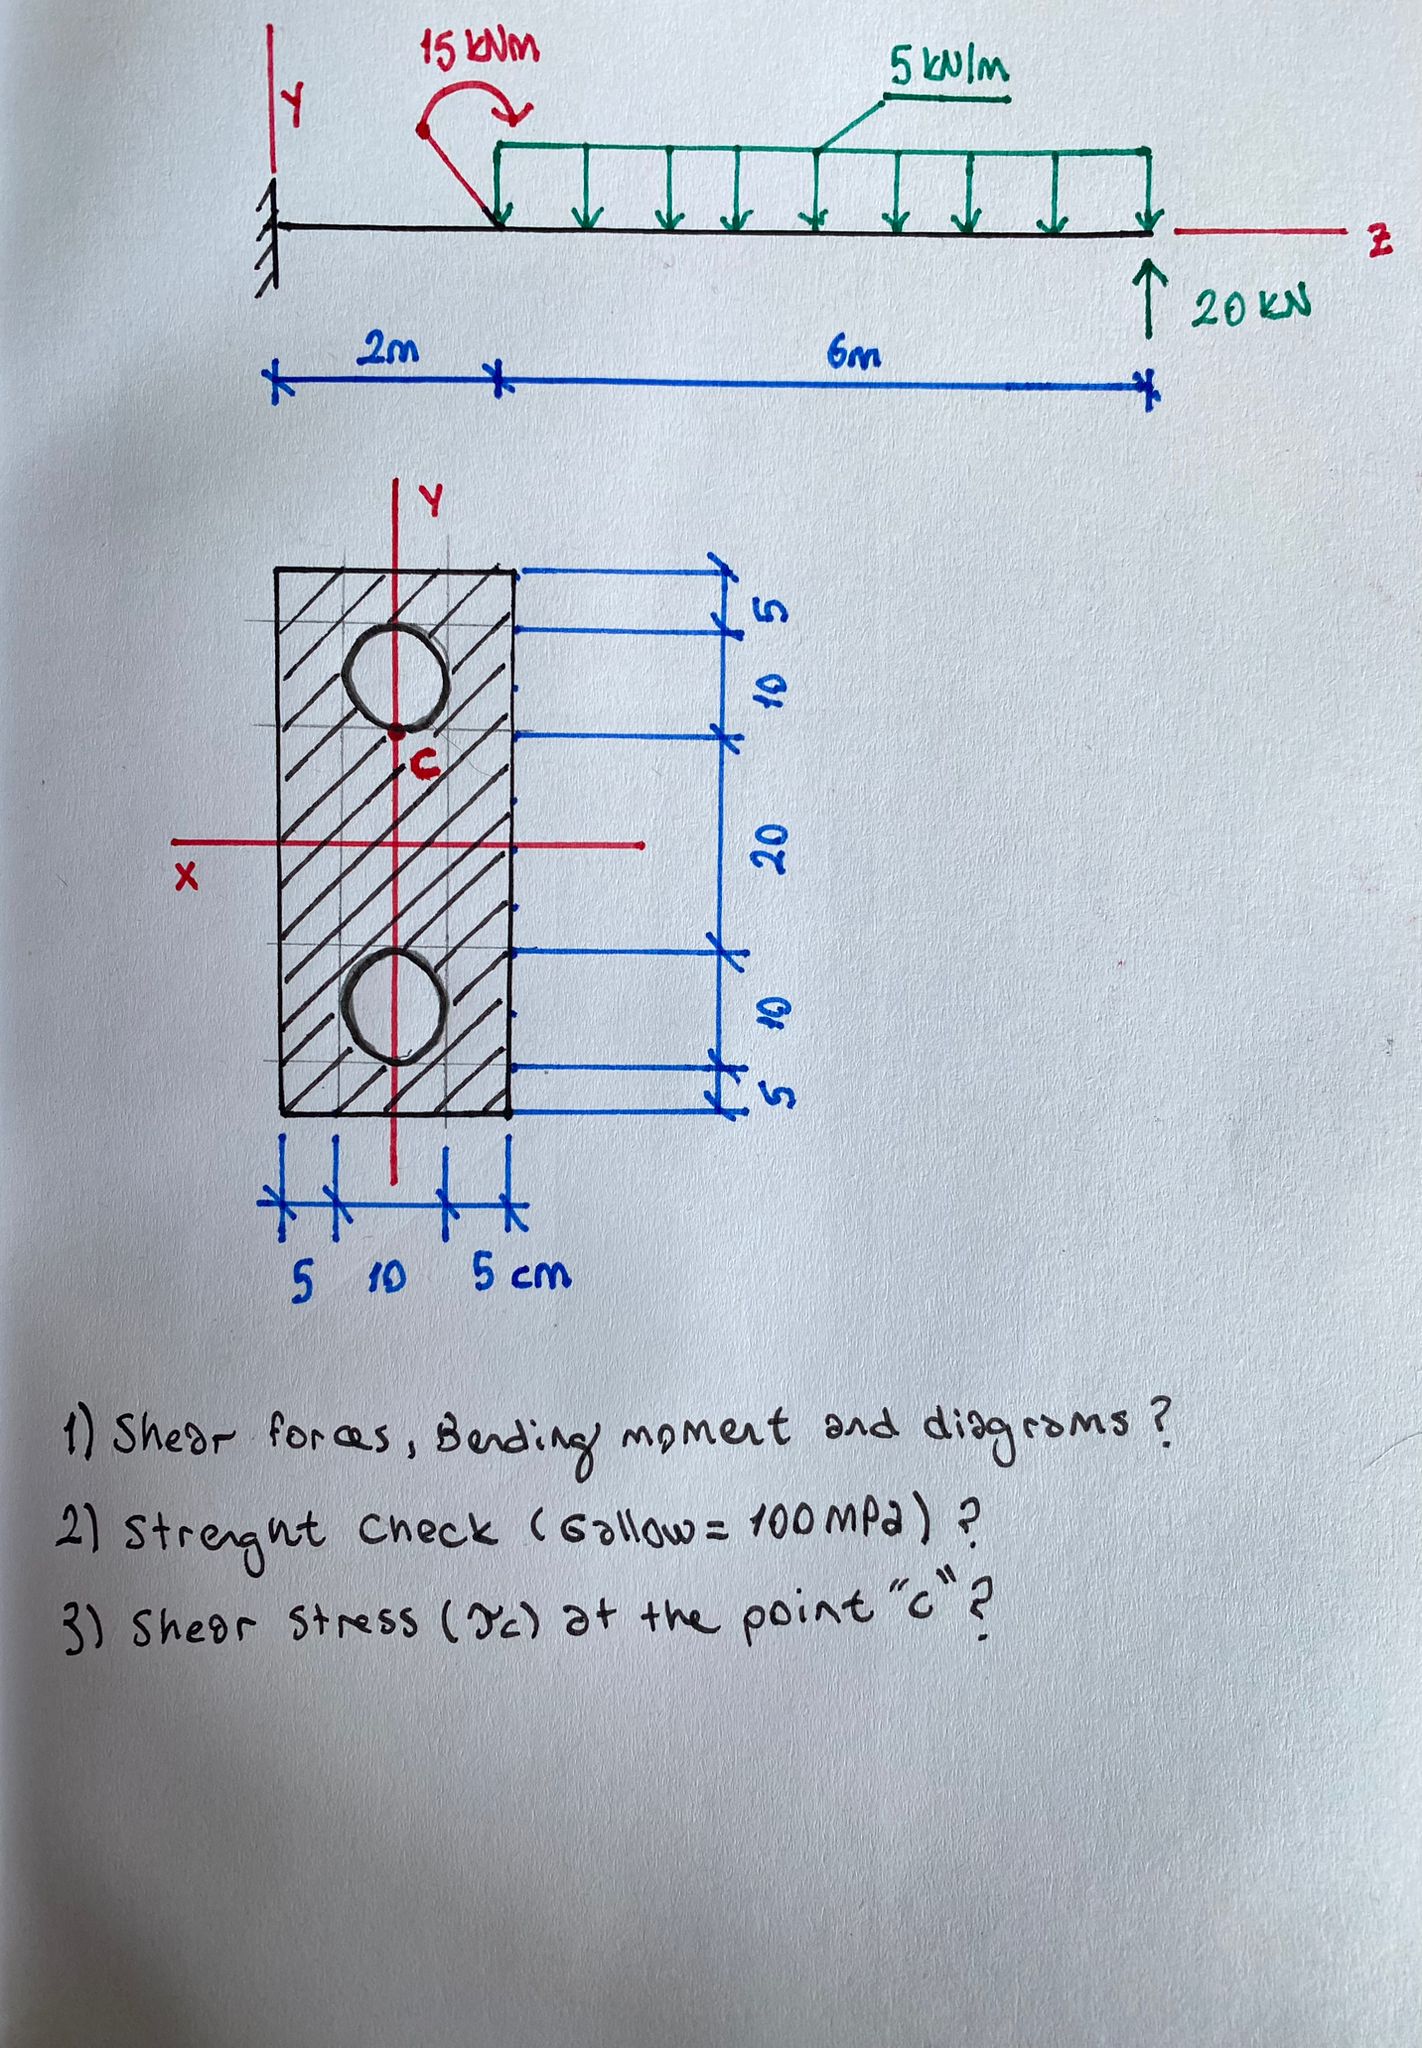 15 kNm
5 kN/m
Y
z
20 kN
2m
6m
Y
5
10
C
20
X
10
5
5 10 5 cm
1) Shear forces, Bending moment and diagrams?
2) Strenght check (σallow = 100 MPa)?
3) Shear stress (τc) at the point "c"?